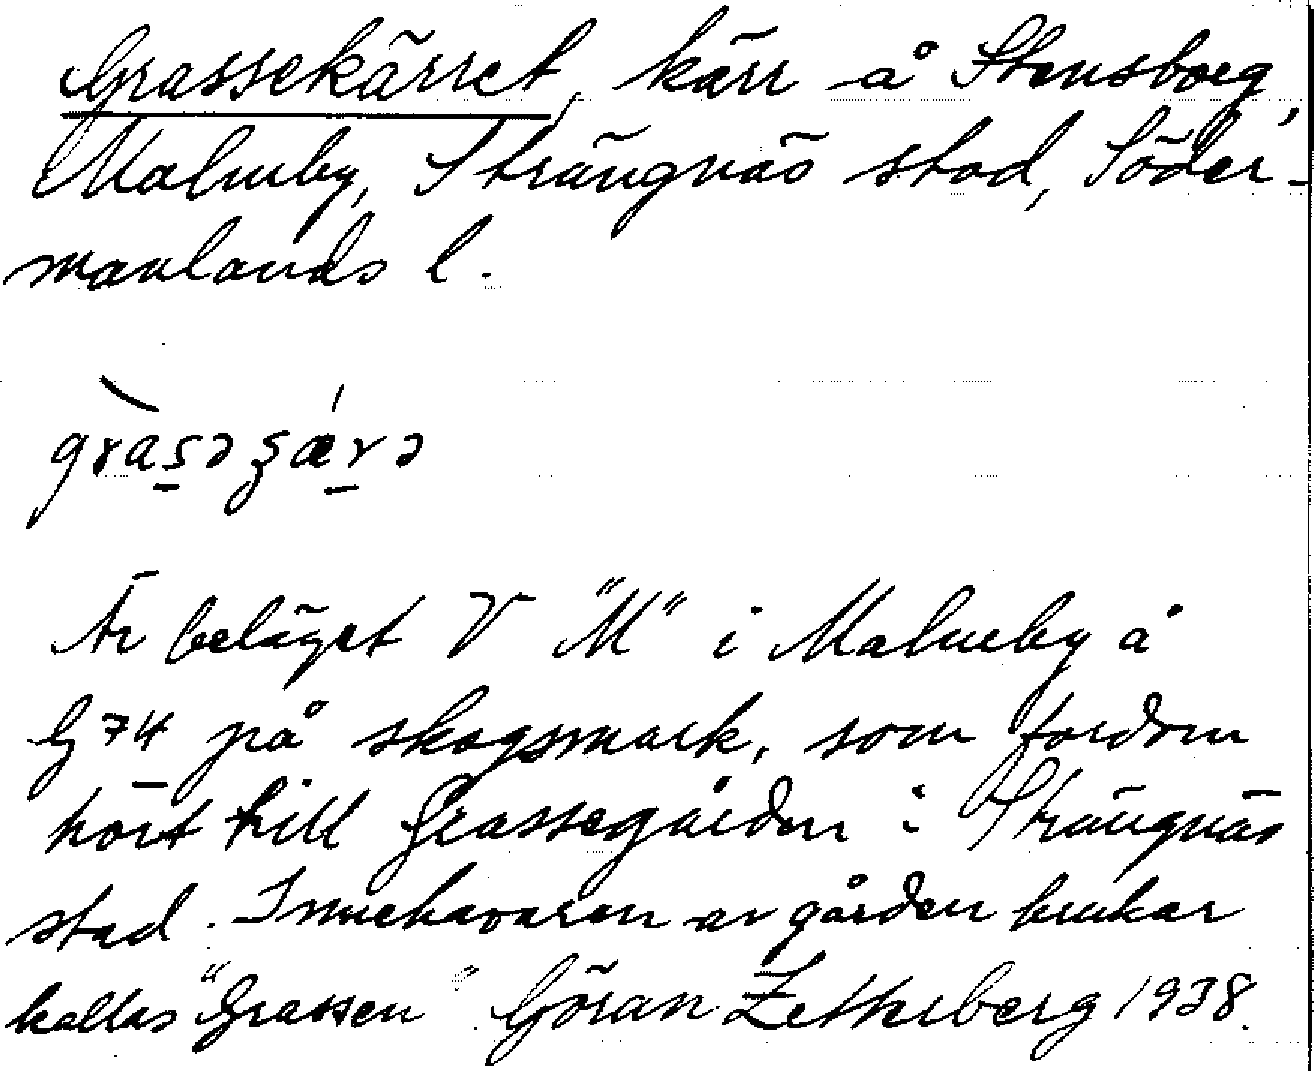 Grassekärret, kärr å Stensborg,
Malmby, Strängnäs stad, Söder-
manlands l.
grasə ʂærə
Är beläget V "M" i Malmby å
G 74 på skogsmark, som fordom
hört till Grassegården i Strängnäs
stad. Innehavaren av gården brukar
kallas "Grassen". Göran Zetherberg 1938.